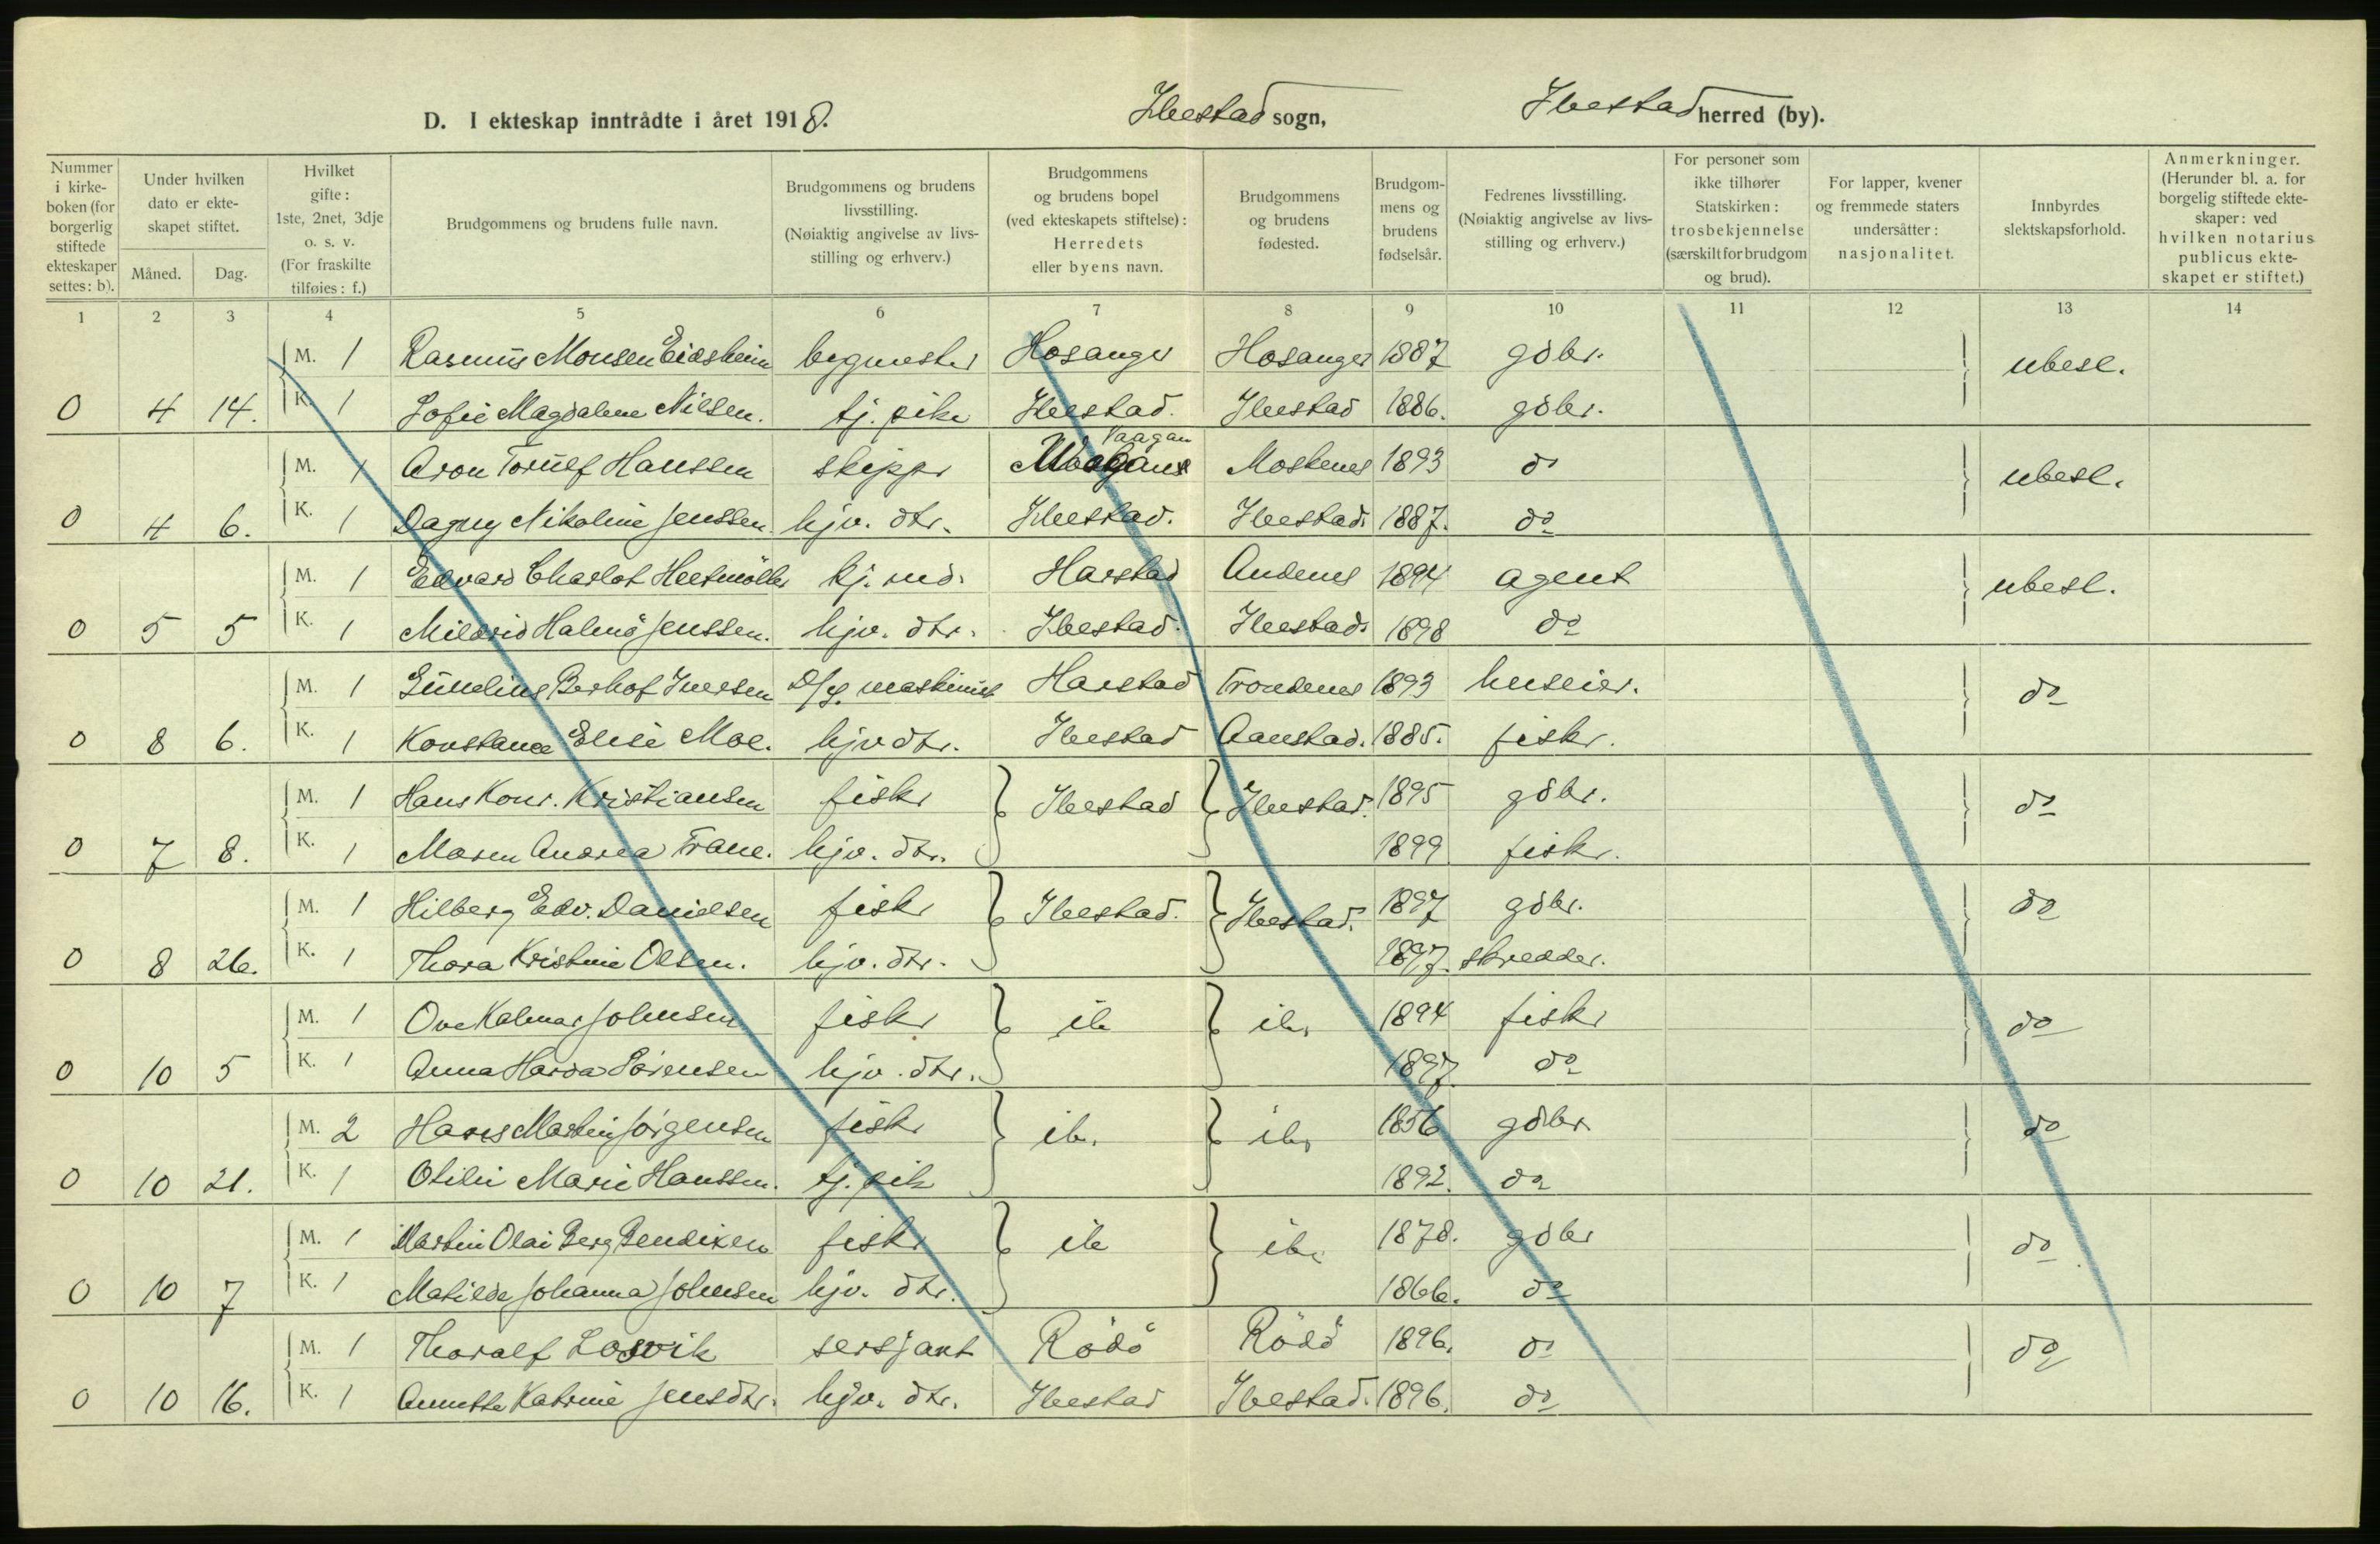 D. I ekteskap inntrådte i året 1918. Ibestad sogn, Ibestad herred (by).
Nummer i kirkeboken (for borgerlig stiftede ekteskaper settes: b).
Under hvilken dato er ekteskapet stiftet.
Måned. Dag.
Hvilket gifte: 1ste, 2net, 3dje o. s. v. (For fraskilte tilføies: f.)
Brudgommens og brudens fulle navn.
Brudgommens og brudens livsstilling. (Nøiaktig angivelse av livsstilling og erhverv.)
Brudgommens og brudens bopel (ved ekteskapets stiftelse): Herredets eller byens navn.
Brudgommens og brudens fødested.
Brudgommens og brudens fødselsår.
Fedrenes livsstilling. (Nøiaktig angivelse av livsstilling og erhverv.)
For personer som ikke tilhører Statskirken: trosbekjennelse (særskilt for brudgom og brud).
For lapper, kvener og fremmede staters undersåtter: nasjonalitet.
Innbyrdes slektskapsforhold.
Anmerkninger. (Herunder bl. a. for borgelig stiftede ekteskaper: ved hvilken notarius publicus ekteskapet er stiftet.)
1 2 3 4 5 6 7 8 9 10 11 12 13 14
M. 1 Rasmus Monsen Eidsheim bygmester Hosanger Hosanger 1887 gdbr. ubesl.
0 4 14. K. 1 Sofie Magdalene Nilsen. tj. pike Ibestad. Ibestad 1886. gdbr.
Vaagan
M. 1 Aron Torulf Hanssen skipper Moskenes 1893 do ubesl.
0 4 6. K. 1 Dagny Nikoline Jenssen. hjv. dtr. Ibestad. Ibestad. 1887. do
M. 1 Edvard Charlot Heitmöller hj. Harstad Andenes 1894 agent ubesl.
0 5 5 K. 1 Mildrid Halmö Jenssen. hjv. dtr. Ibestad. Ibestad. 1898 do
M. 1 Berhof Iversen D/s. maskinist Harstad Trondenes 1893 huseier. do
0 8 6. K. 1 Konstance Elise Moe. hjv dtr. Ibestad Aanstad. 1885. fisker.
M. 1 Hans Konr. Kristiansen fisker Ibestad Ibestad. 1895 gdbr. do
0 7 8. K. 1 Maren Andrea Trane. hjv. dtr. 1899 fisker.
M. 1 Hilberg Edv. Danielsen fisker Ibestad. Ibestad. 1897 gdbr. do
0 8 26. K. 1 Thora Kristine Olsen. hjv. dtr. 1897. skredder.
M. 1 Ove Kalmar Johnsen fisker ib ib. 1894 fisker do
0 10 5 K. 1 Anna Harda Sörensen hjv. dtr. 1897. do
M. 2 Hans Martin Jörgensen fisker ib. ib. 1856 gdbr. do
0 10 21. K. 1 Otilie Marie Hanssen. tj. pike 1892. do
M. 1 Martin Olai Berg Bendixen fisker ib ib. 1878. gdbr do
0 10 7 K. 1 Matilde Johanna Johnsen hjv. dtr. 1866. do
M. 1 Thoralf Losvik sersjant Rödö Rödö 1896. do do
0 10 16. K. 1 Annette Katrine Jensdtr. hjv. dtr. Ibestad Ibestad. 1896. do